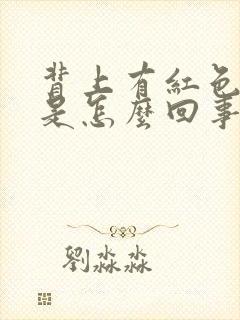 背上有紅色
是怎麼回事
劉淼淼